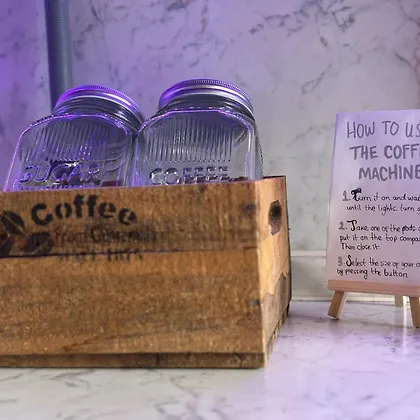 SUGAR
COFFEE
Coffee
HOW TO US
THE COFFE
MACHINE
1. Turn it on and wa
until the lights turn o
2. Take one of the pods
put it on the top compa
Then close it.
3. Select the size of your c
by pressing the button